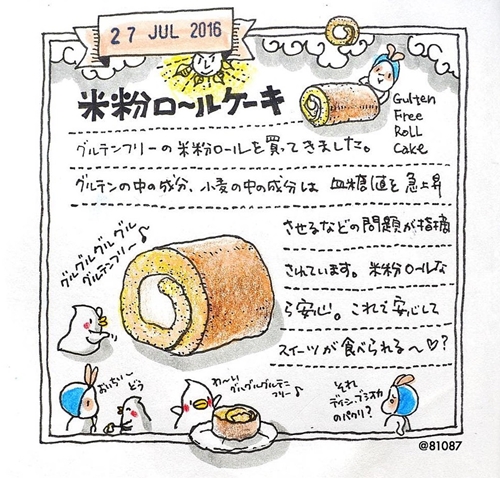 27 JUL 2016
米粉ロールケーキ
Gulten
Free
Roll
Cake
グルテンフリーの米粉ロールを買ってきました。
グルテンの中の成分、小麦の中の成分は 血糖値を急上昇
させるなどの問題が指摘
されています。米粉ロールな
ら安心。これで安心して
スイーツが食べられる〜♡?
グルグルグルグル
グルテンフリー♪
おいちぃ〜
どう
わ〜い
グルグルグルテン
フリー♪
それ
のパクリ?
@81087